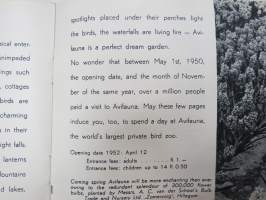 sical enter-
unimpeded
ings such
, cottages
birds are
charming
s in their
ight falls.
lanterns
ountains
d lakes,
spotlights placed under their perches light
the birds, the waterfalls are living fire — Avi-
fauna is a perfect dream garden.
No wonder that between May 1st, 1950,
the opening date, and the month of Novem-
ber of the same year, over a million people
paid a visit to Avifauna. May these few pages
induce you, too, to spend a day at Avifauna,
the world's largest private bird zoo.
Opening date 1952: April 12
Entrance fees: adults f 1.—
Entrance fees: children up to 14 f 0.50
Coming spring Avifauna will be more enchanting than ever
owing to the redundant splendor of 200,000 flower
bulbs, planted by Messrs. A. C. van der Schoot's Bulb
Trade and Nursery Ltd „Zonnevang", Hillegom